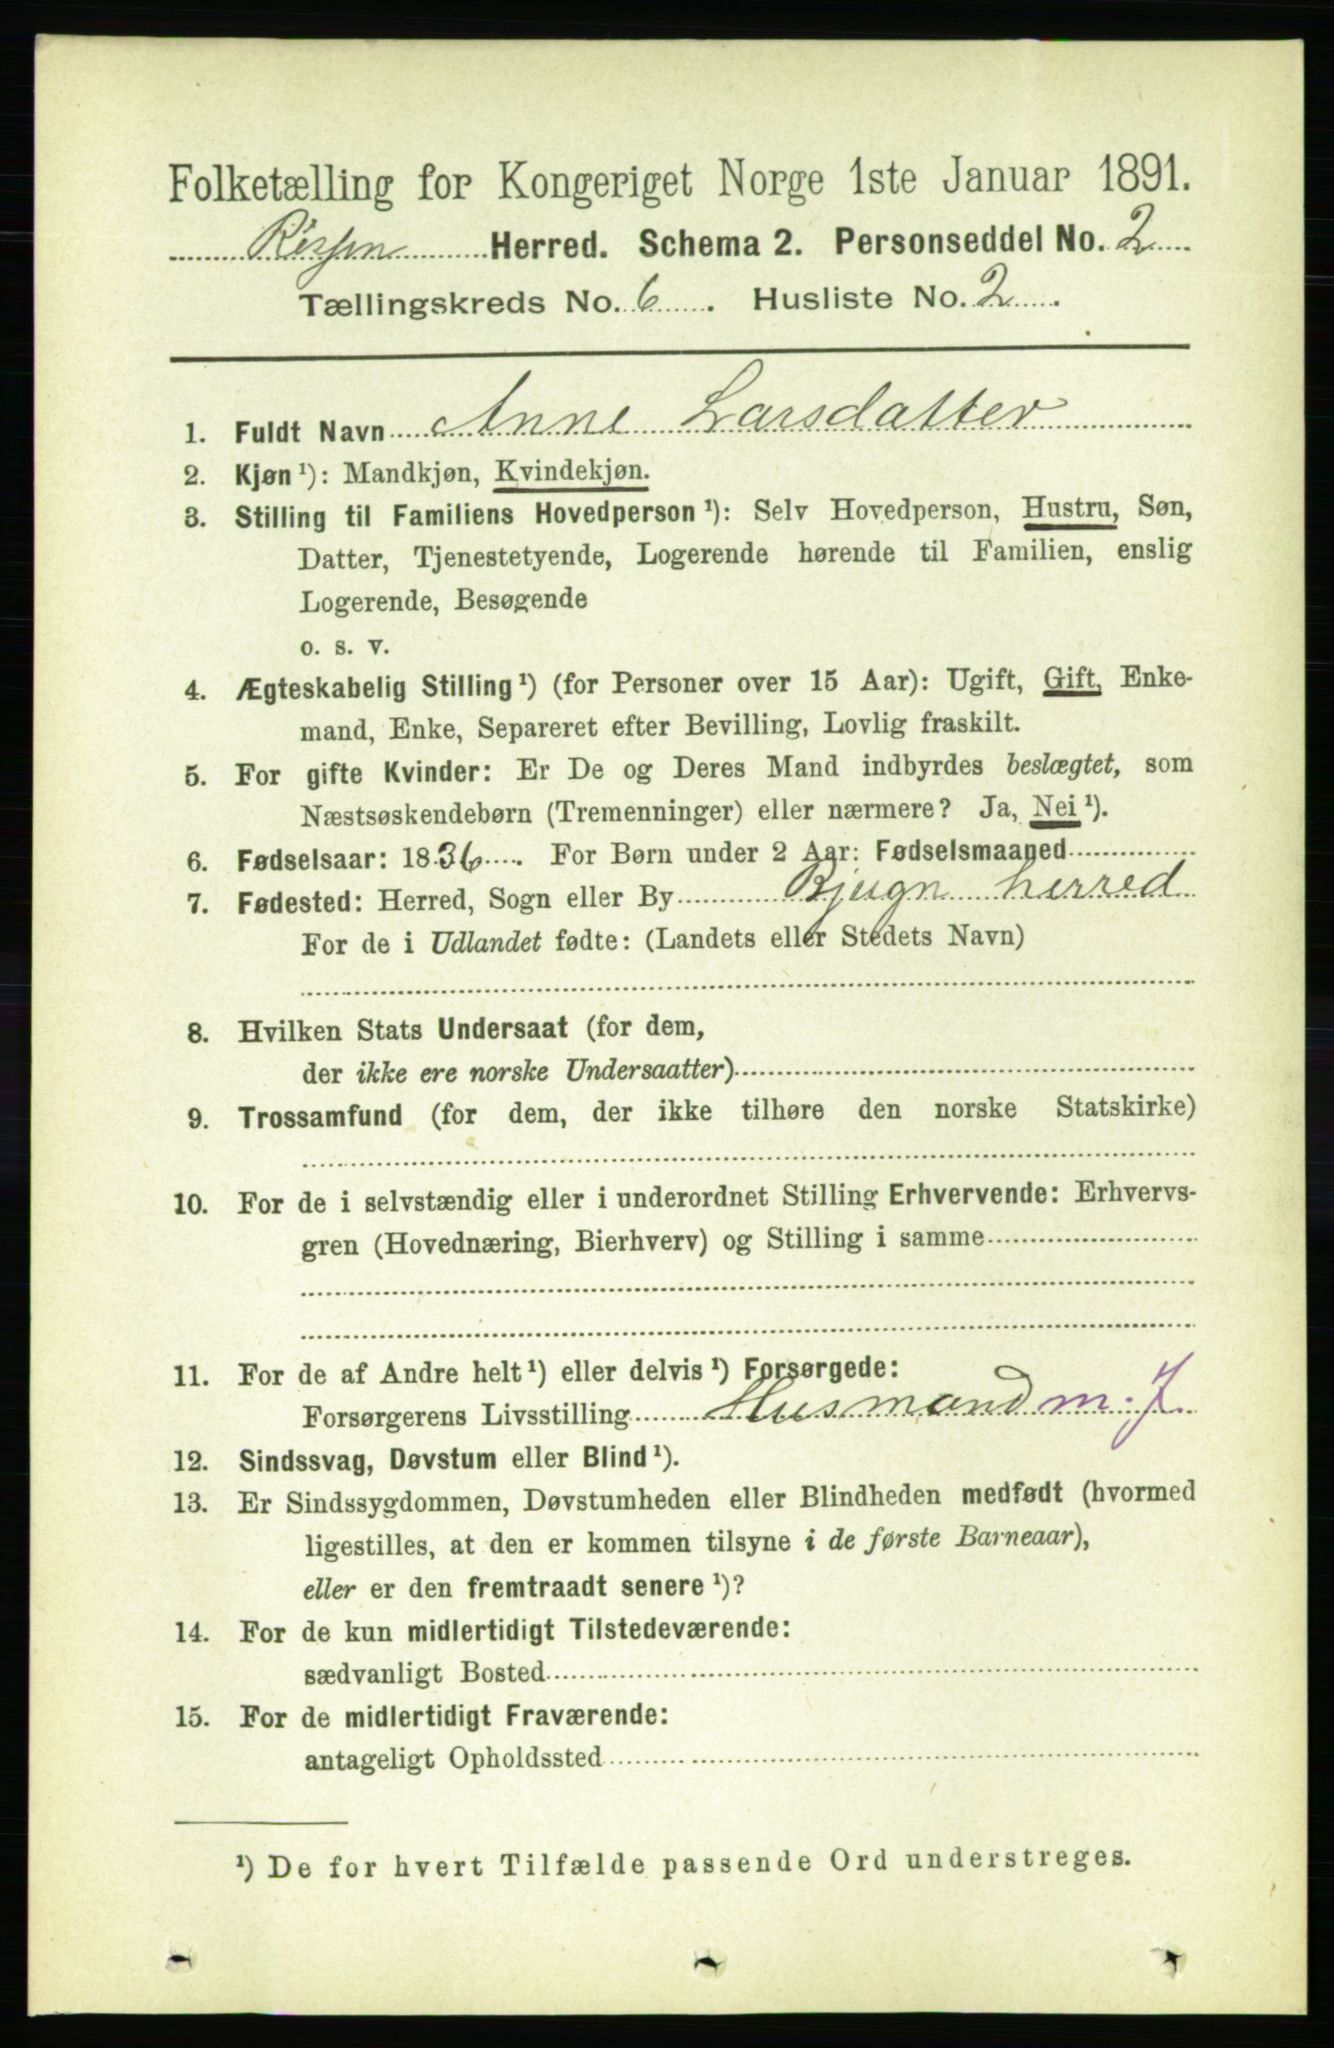 Folketælling for Kongeriget Norge 1ste Januar 1891.
Rissen Herred. Schema 2. Personseddel No. 2
Tællingskreds No. 6. Husliste No. 2.
1. Fuldt Navn Anne Larsdatter
2. Kjøn ¹): Mandkjøn, Kvindekjøn.
3. Stilling til Familiens Hovedperson ¹): Selv Hovedperson, Hustru, Søn,
Datter, Tjenestetyende, Logerende hørende til Familien, enslig
Logerende, Besøgende
o. s. v.
4. Ægteskabelig Stilling ¹) (for Personer over 15 Aar): Ugift, Gift, Enke-
mand, Enke, Separeret efter Bevilling, Lovlig fraskilt.
5. For gifte Kvinder: Er De og Deres Mand indbyrdes beslægtet, som
Næstsøskendebørn (Tremenninger) eller nærmere? Ja, Nei ¹).
6. Fødselsaar: 1836. For Børn under 2 Aar: Fødselsmaaned
7. Fødested: Herred, Sogn eller By Bjugn herred
For de i Udlandet fødte: (Landets eller Stedets Navn)
8. Hvilken Stats Undersaat (for dem,
der ikke ere norske Undersaatter)
9. Trossamfund (for dem, der ikke tilhøre den norske Statskirke)
10. For de i selvstændig eller i underordnet Stilling Erhvervende: Erhvervs-
gren (Hovednæring, Bierhverv) og Stilling i samme
11. For de af Andre helt ¹) eller delvis ¹) Forsørgede:
Forsørgerens Livsstilling Husmand m. J.
12. Sindssvag, Døvstum eller Blind ¹).
13. Er Sindssygdommen, Døvstumheden eller Blindheden medfødt (hvormed
ligestilles, at den er kommen tilsyne i de første Barneaar),
eller er den fremtraadt senere ¹)?
14. For de kun midlertidigt Tilstedeværende:
sædvanligt Bosted
15. For de midlertidigt Fraværende:
antageligt Opholdssted
¹) De for hvert Tilfælde passende Ord understreges.